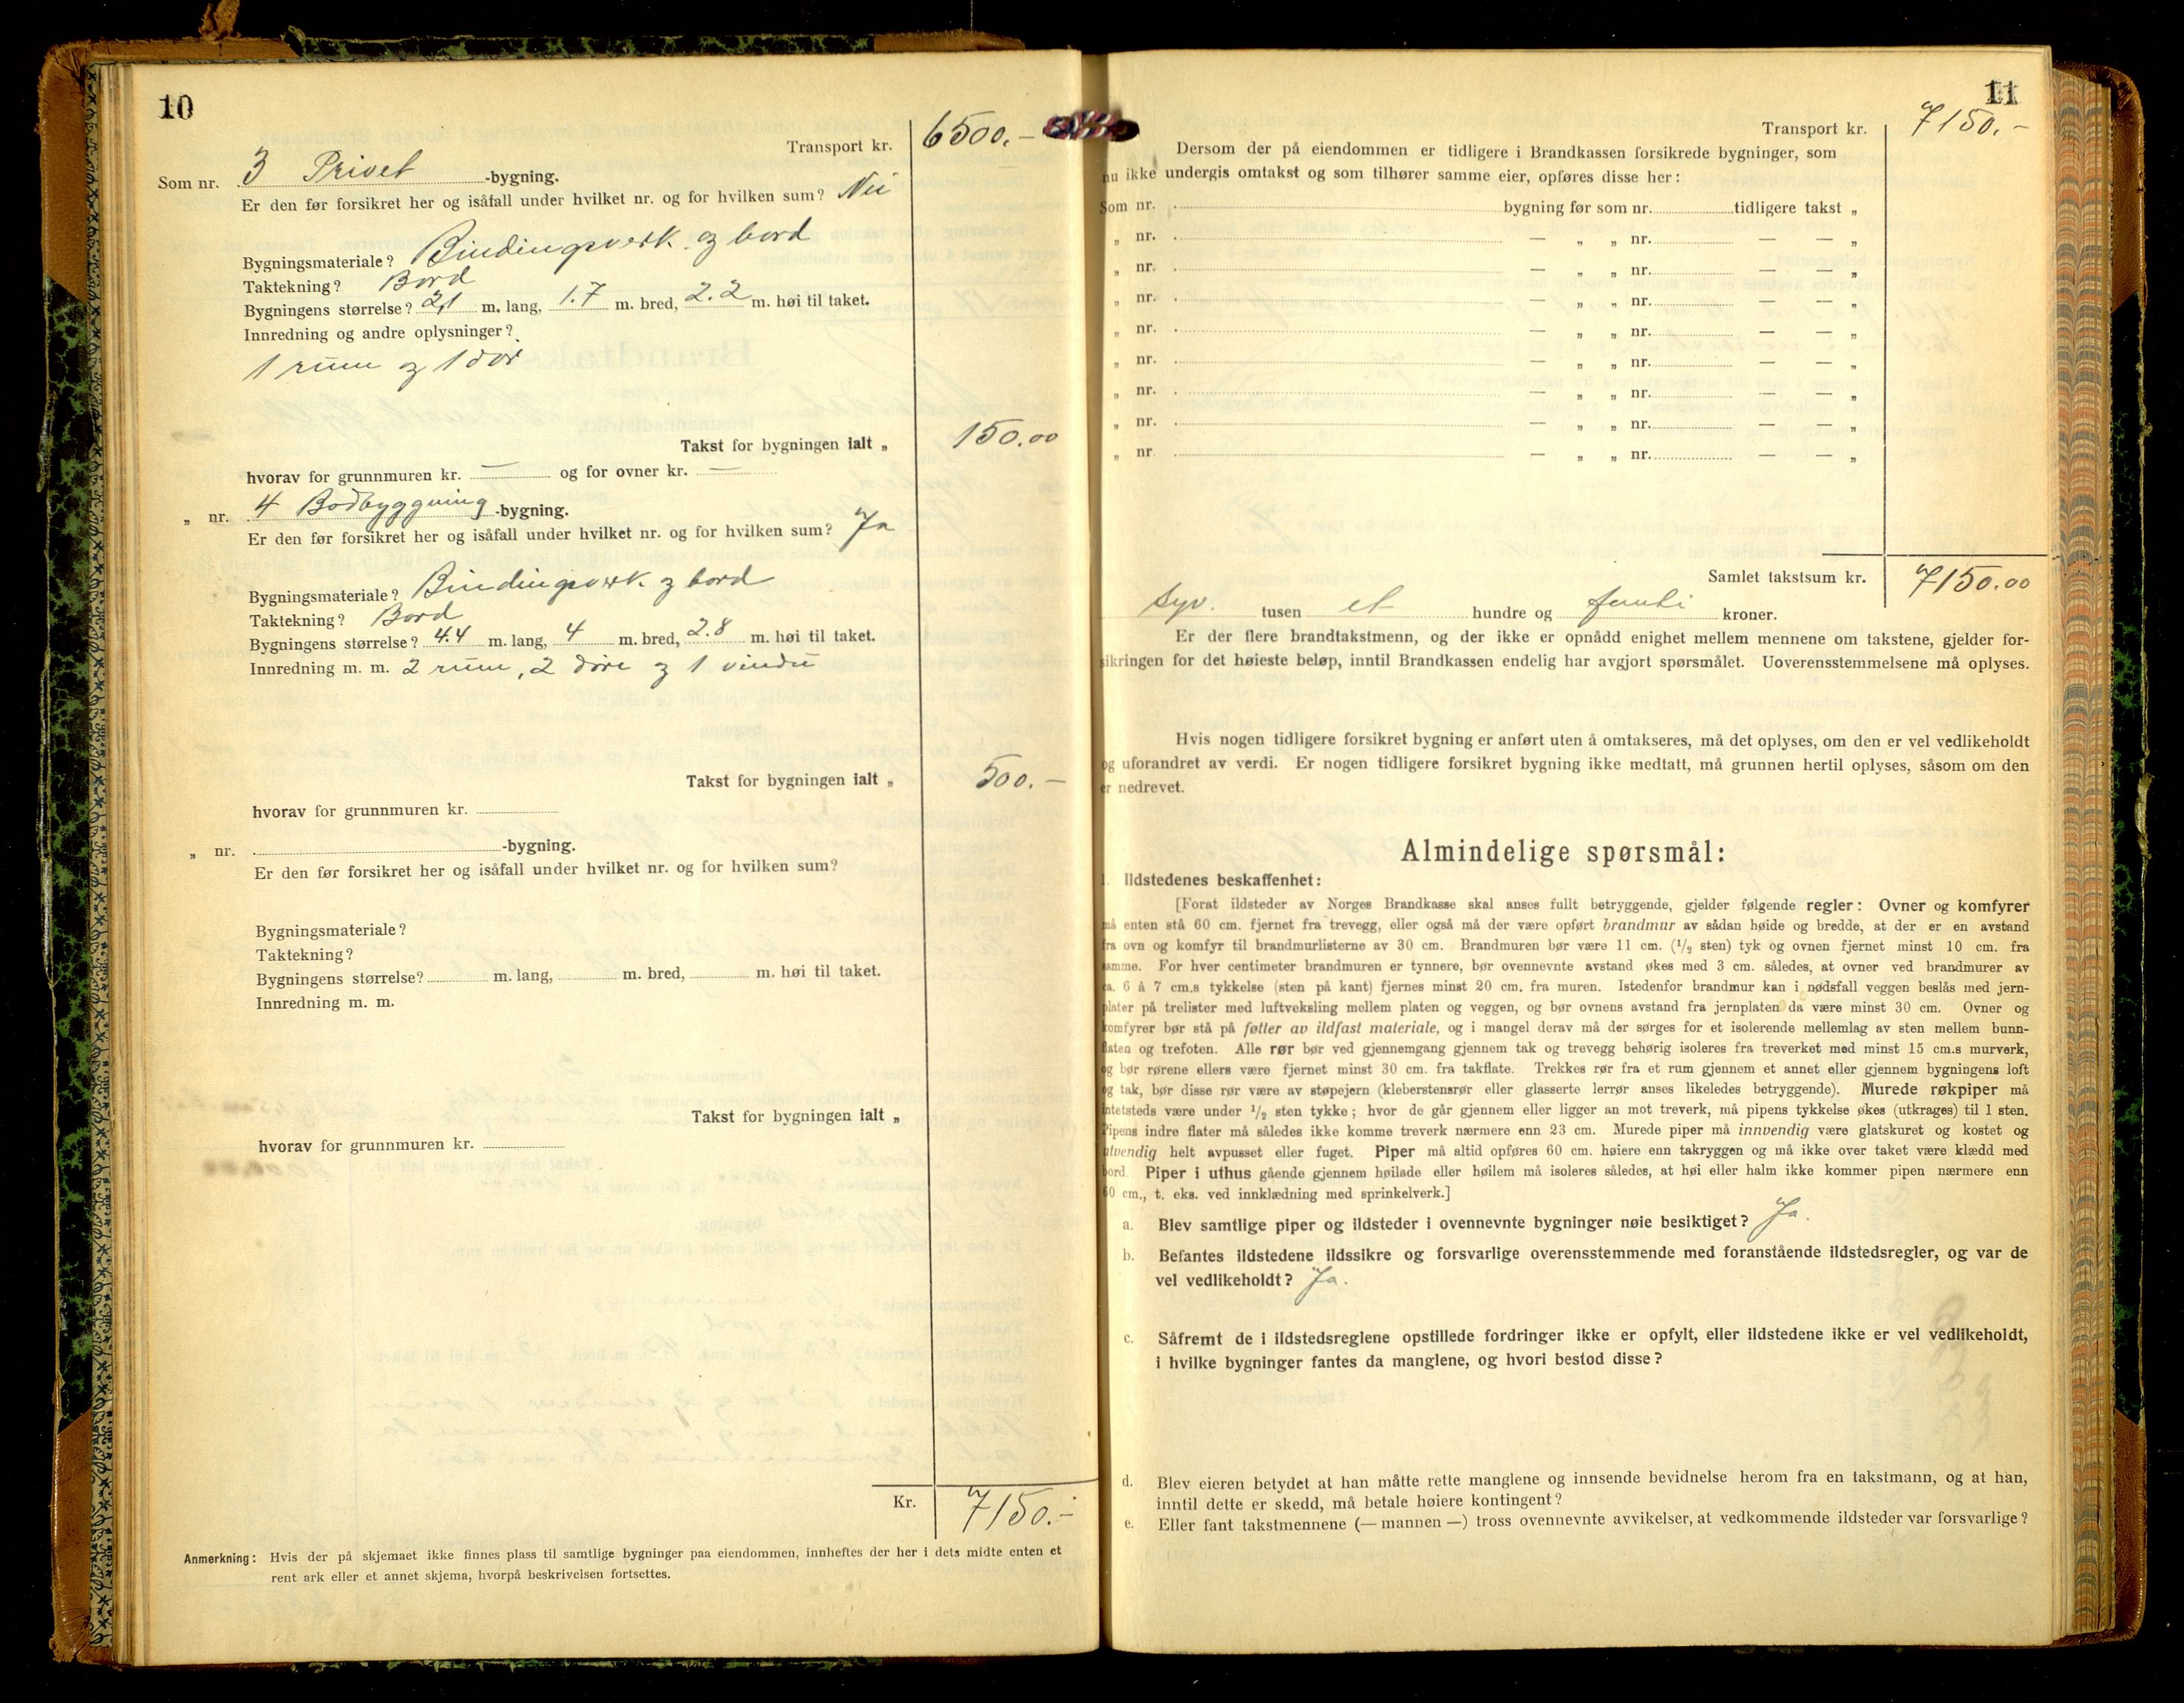 10
Transport kr. 6500.-
Som nr. 3 Privet -bygning.
Er den før forsikret her og isåfall under hvilket nr. og for hvilken sum? Nei
Bygningsmateriale? Bindingsverk og bord
Taktekning? Bord
Bygningens størrelse? 2,1 m. lang, 1.7 m. bred, 2.2 m. høi til taket.
Innredning og andre oplysninger?
1 rum og 1 dør
Takst for bygningen ialt „ 150.00
hvorav for grunnmuren kr. — og for ovner kr. —
„ nr. 4 Bodbyggning -bygning.
Er den før forsikret her og isåfall under hvilket nr. og for hvilken sum? Ja
Bygningsmateriale? Bindingsverk og bord
Taktekning? Bord
Bygningens størrelse? 4.4 m. lang, 4 m. bred, 2.8 m. høi til taket.
Innredning m. m. 2 rum, 2 døre og 1 vindu
Takst for bygningen ialt „ 500.-
hvorav for grunnmuren kr.
„ nr. -bygning.
Er den før forsikret her og isåfall under hvilket nr. og for hvilken sum?
Bygningsmateriale?
Taktekning?
Bygningens størrelse? m. lang, m. bred, m. høi til taket.
Innredning m. m.
Takst for bygningen ialt „
hvorav for grunnmuren kr.
Kr. 7150.-
Anmerkning: Hvis der på skjemaet ikke finnes plass til samtlige bygninger paa eiendommen, innheftes der her i dets midte enten et
rent ark eller et annet skjema, hvorpå beskrivelsen fortsettes.
11
Transport kr. 7150.-
Dersom der på eiendommen er tidligere i Brandkassen forsikrede bygninger, som
nu ikke undergis omtakst og som tilhører samme eier, opføres disse her:
Som nr. bygning før som nr. tidligere takst „
„ nr. — „ „ nr. — — „
„ nr. — „ „ nr. — — „
„ nr. — „ „ nr. — — „
„ nr. — „ „ nr. — — „
„ nr. — „ „ nr. — — „
„ nr. — „ „ nr. — — „
„ nr. — „ „ nr. — — „
„ nr — „ „ nr. — — „
Samlet takstsum kr. 7150.00
Syv. tusen et hundre og femti kroner.
Er der flere brandtakstmenn, og der ikke er opnådd enighet mellem mennene om takstene, gjelder for-
sikringen for det høieste beløp, inntil Brandkassen endelig har avgjort spørsmålet. Uoverensstemmelsene må oplyses.
Hvis nogen tidligere forsikret bygning er anført uten å omtakseres, må det oplyses, om den er vel vedlikeholdt
og uforandret av verdi. Er nogen tidligere forsikret bygning ikke medtatt, må grunnen hertil oplyses, såsom om den
er nedrevet.
Almindelige spørsmål:
1. Ildstedenes beskaffenhet:
[Forat ildsteder av Norges Brandkasse skal anses fullt betryggende, gjelder følgende regler: Ovner og komfyrer
må enten stå 60 cm. fjernet fra trevegg, eller også må der være opført brandmur av sådan høide og bredde, at der er en avstand
fra ovn og komfyr til brandmurlisterne av 30 cm. Brandmuren bør være 11 cm. (1/2 sten) tyk og ovnen fjernet minst 10 cm. fra
samme. For hver centimeter brandmuren er tynnere, bør ovennevnte avstand økes med 3 cm. således, at ovner ved brandmurer av
ca. 6 à 7 cm.s tykkelse (sten på kant) fjernes minst 20 cm. fra muren. Istedenfor brandmur kan i nødsfall veggen beslås med jern-
plater på trelister med luftveksling mellem platen og veggen, og bør ovnens avstand fra jernplaten da være minst 30 cm. Ovner og
komfyrer bør stå på føtter av ildfast materiale, og i mangel derav må der sørges for et isolerende mellemlag av sten mellem bunn-
flaten og trefoten. Alle rør bør ved gjennemgang gjennem tak og trevegg behørig isoleres fra treverket med minst 15 cm.s murverk,
og bør rørene ellers være fjernet minst 30 cm. fra takflate. Trekkes rør fra et rum gjennem et annet eller gjennem bygningens loft
og tak, bør disse rør være av støpejern (kleberstensrør eller glasserte lerrør anses likeledes betryggende). Murede røkpiper må
intetsteds være under 1/2 sten tykke; hvor de går gjennem eller ligger an mot treverk, må pipens tykkelse økes (utkrages) til 1 sten.
Pipens indre flater må således ikke komme treverk nærmere enn 23 cm. Murede piper må innvendig være glatskuret og kostet og
utvendig helt avpusset eller fuget. Piper må altid opføres 60 cm. høiere enn takryggen og må ikke over taket være klædd med
bord. Piper i uthus gående gjennem høilade eller høilem må isoleres således, at høi eller halm ikke kommer pipen nærmere enn
60 cm., t. eks. ved innklædning med sprinkelverk.]
a. Blev samtlige piper og ildsteder i ovennevnte bygninger nøie besiktiget? Ja.
b. Befantes ildstedene ildssikre og forsvarlige overensstemmende med foranstående ildstedsregler, og var de
vel vedlikeholdt? Ja.
c. Såfremt de i ildstedsreglene opstillede fordringer ikke er opfylt, eller ildstedene ikke er vel vedlikeholdt,
i hvilke bygninger fantes da manglene, og hvori bestod disse?
d. Blev eieren betydet at han måtte rette manglene og innsende bevidnelse herom fra en takstmann, og at han,
inntil dette er skedd, må betale høiere kontingent?
e. Eller fant takstmennene (— mannen —) tross ovennevnte avvikelser, at vedkommende ildsteder var forsvarlige?